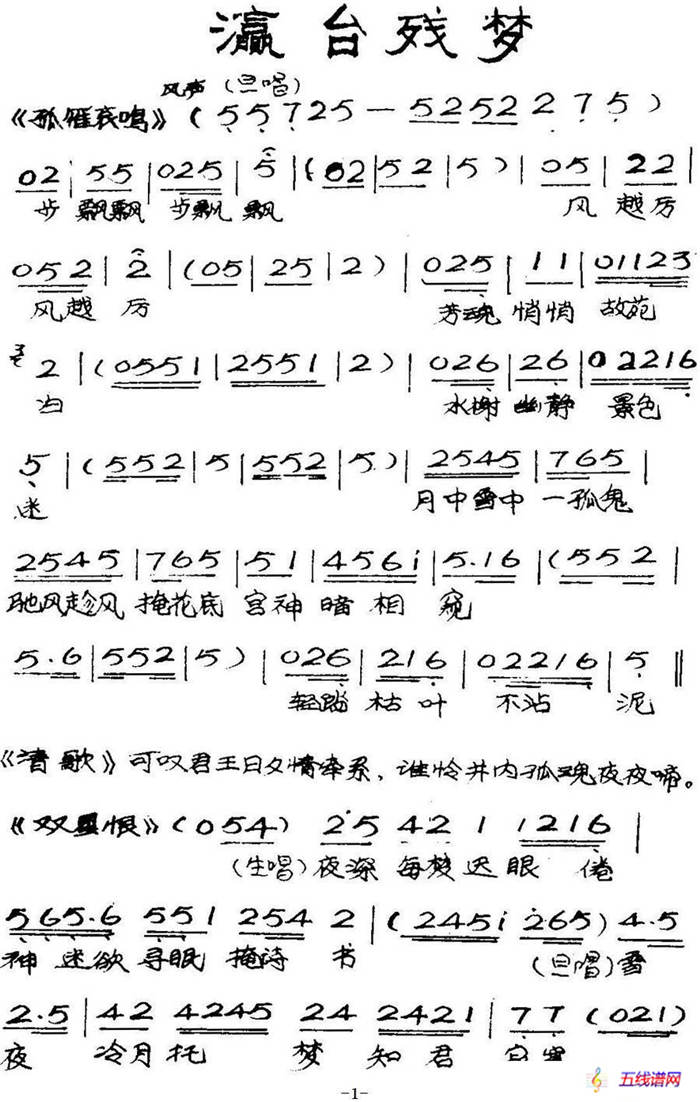 瀛台残梦
风声 (旦唱)
《孤雁哀鸣》 ( 5 5 7 2 5 — 5 2 5 2 2 7 5 )
0 2 | 5 5 | 0 2 5 | 5 | ( 0 2 | 5 2 | 5 ) | 0 5 | 2 2 |
步 飘飘 步飘 飘 风 越厉
0 5 2 | 2 | ( 0 5 | 2 5 | 2 ) | 0 2 5 | 1 1 | 0 1 1 2 3
风越 厉 芳魂 悄悄 故苑
2 | ( 0 5 5 1 | 2 5 5 1 | 2 ) | 0 2 6 | 2 6 | 0 2 2 1 6
归 水榭 幽静 景色
5 | ( 5 5 2 | 5 | 5 5 2 | 5 ) | 2 5 4 5 | 7 6 5 |
迷 月中雪中 一孤鬼
2 5 4 5 | 7 6 5 | 5 1 | 4 5 6 i | 5 . 1 6 | ( 5 5 2 |
驰风趁风 掩花底 宫神 暗相 窥
5 . 6 | 5 5 2 | 5 ) | 0 2 6 | 2 1 6 | 0 2 2 1 6 | 5 ‖
轻踏 枯叶 不沾 泥
《清歌》可叹君王日夕情牵系、谁怜井内孤魂夜夜啼。
《双星恨》 ( 0 5 4 ) 2 · 5 4 2 1 1 2 1 6 |
(生唱) 夜深 每梦迷眼 倦
5 6 5 . 6 5 5 1 2 5 4 2 | ( 2 4 5 i 2 6 5 ) 4 . 5
神 迷欲 寻眠 掩诗 书 (旦唱) 雪
2 . 5 | 4 2 4 2 4 5 2 4 2 4 2 1 | 7 7 ( 0 2 1 )
夜 冷月托 梦 知君
-1-
五线谱网